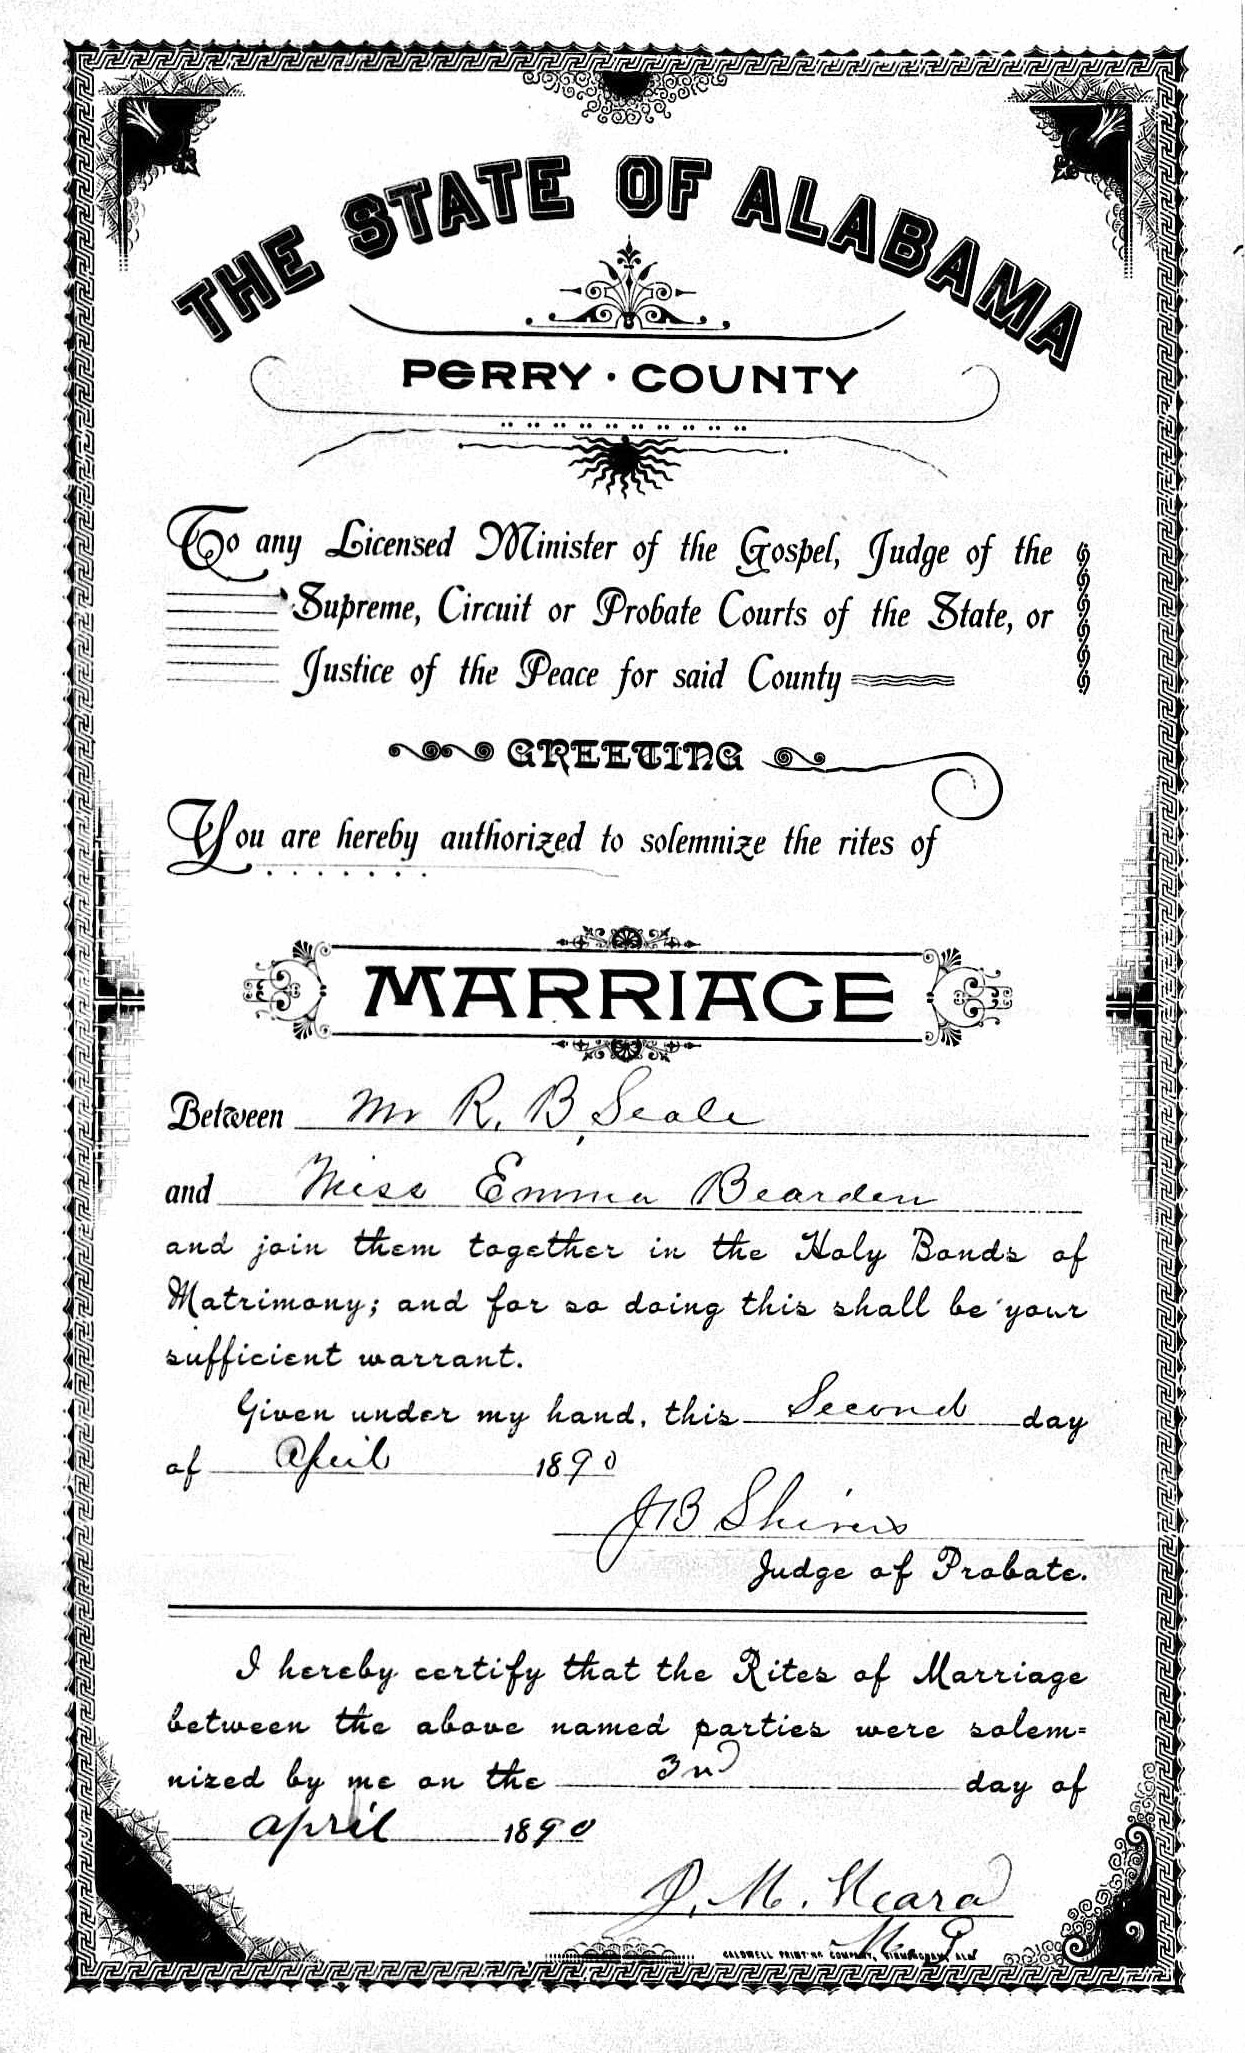 THE STATE OF ALABAMA
PERRY · COUNTY
To any Licensed Minister of the Gospel, Judge of the
Supreme, Circuit or Probate Courts of the State, or
Justice of the Peace for said County
GREETING
You are hereby authorized to solemnize the rites of
MARRIAGE
Between Mr R. B. Seale
and Miss Emma Bearden
and join them together in the Holy Bonds of
Matrimony; and for so doing this shall be your
sufficient warrant.
Given under my hand, this Second day
of April 1890
JB Shivers
Judge of Probate.
I hereby certify that the Rites of Marriage
between the above named parties were solem=
nized by me on the 3rd day of
april 1890
J. M. Heard
M. G.
CALDWELL PRINTING COMPANY, BIRMINGHAM, ALA